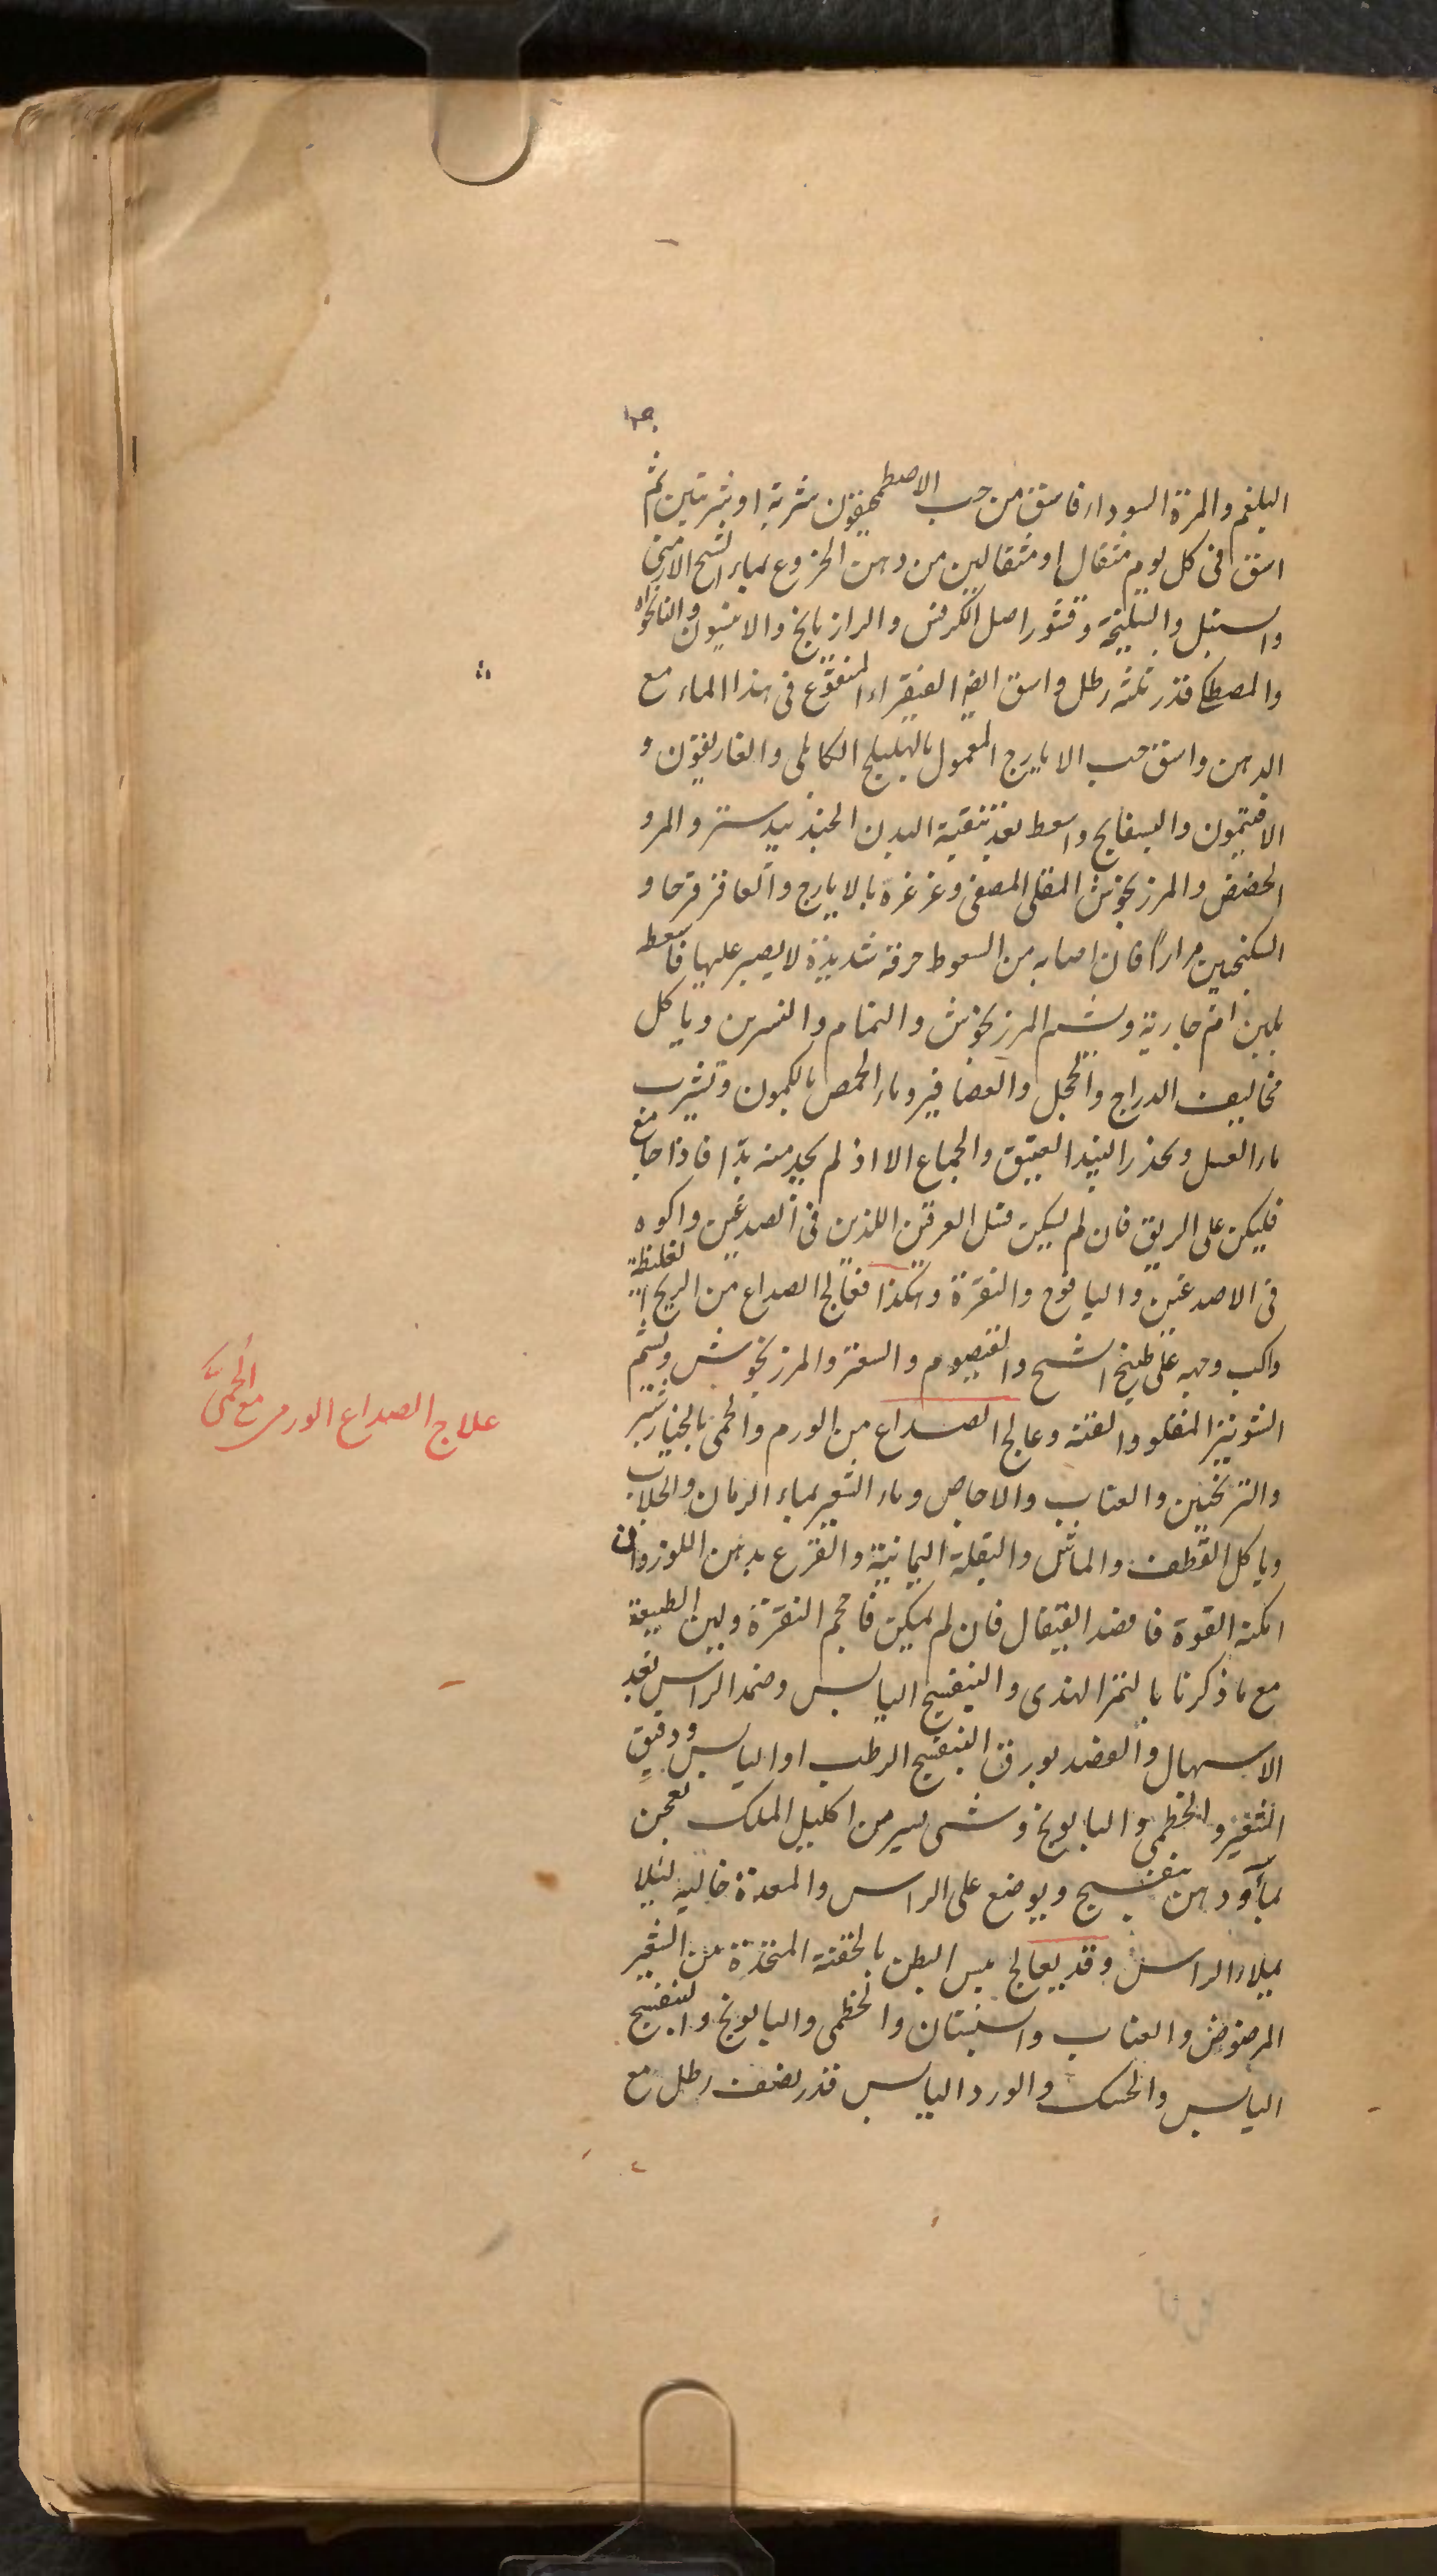 البلغم والمرة السوداء فاسق من حب الاصطمخيقون شربة او شربتين ثم
اسق فى كل يوم مثقال او مثقالين من دهن الخروع بماء الشيح الارمنى
والسنبل والسليخة وقشور اصل الكرفس والرازيانج والانيسون والنانخواه
والمصطكى قدر ثلثه رطل واسق ايضا الفيقراء المنقوع فى هذا الماء مع
الدهن واسق حب الايارج المعمول بالهليلج الكابلى والغاريقون و
الافتيمون والبسفايج واسعط بعد تنقية البدن الجندبيدستر والمر و
الحضض والمرزنجوش المقلى المصفى وغرغره بالايارج والعاقرقرحا و
السكنجبين مرارا فان اصابه من السعوط حرقة شديدة لا يصبر عليها فاسعط
بلبن ام جارية ويشم المرزنجوش والنمام والنسرين وياكل
مخاليف الدراج والحجل والعصافير وماء الحمص بالكمون وتشرب
ماء العسل ويحذر النبيذ العتيق والجماع الا اذ لم يجد منه بدا فاذا جامع
فليكن على الريق فان لم يسكن فسل العرقين اللذين فى الصدغين واكوه
فى الاصدغين واليافوخ والنقرة وهكذا فعالج الصداع من الريح الغليظة
واكب وجهه على طبيخ الشيح والقيصوم والسعتر والمرزنجوش ويشم
الشونيز المقلو والقنه وعالج الصداع من الورم والحمى بالخيارشنبر
والترنجبين والعناب والاجاص وماء الشعير بماء الرمان والجلاب
وياكل القطف والماش والبقلة اليمانية والقرع بدهن اللوز وان
امكنه القوة فافصد القيفال فان لم يمكن فاحجم النقرة ولين الطبيعة
مع ما ذكرنا بالتمر الهندى والبنفسج اليابس وضمد الراس بعد
الاسهال والفصد بورق البنفسج الرطب او اليابس ودقيق
الشعير والخطمى والبابونج وشى يسير من اكليل الملك بعجن
بماء ودهن بنفسج ويوضع على الراس والمعدة خالية لئلا
يملاء الراس وقد يعالج يبس البطن بالحقنة المتخذة من الشعير
المرضوض والعناب والسبستان والخطمى والبابونج والبنفسج
اليابس والحسك والورد اليابس قدر نصف رطل مع
علاج الصداع الورمى مع الحمى